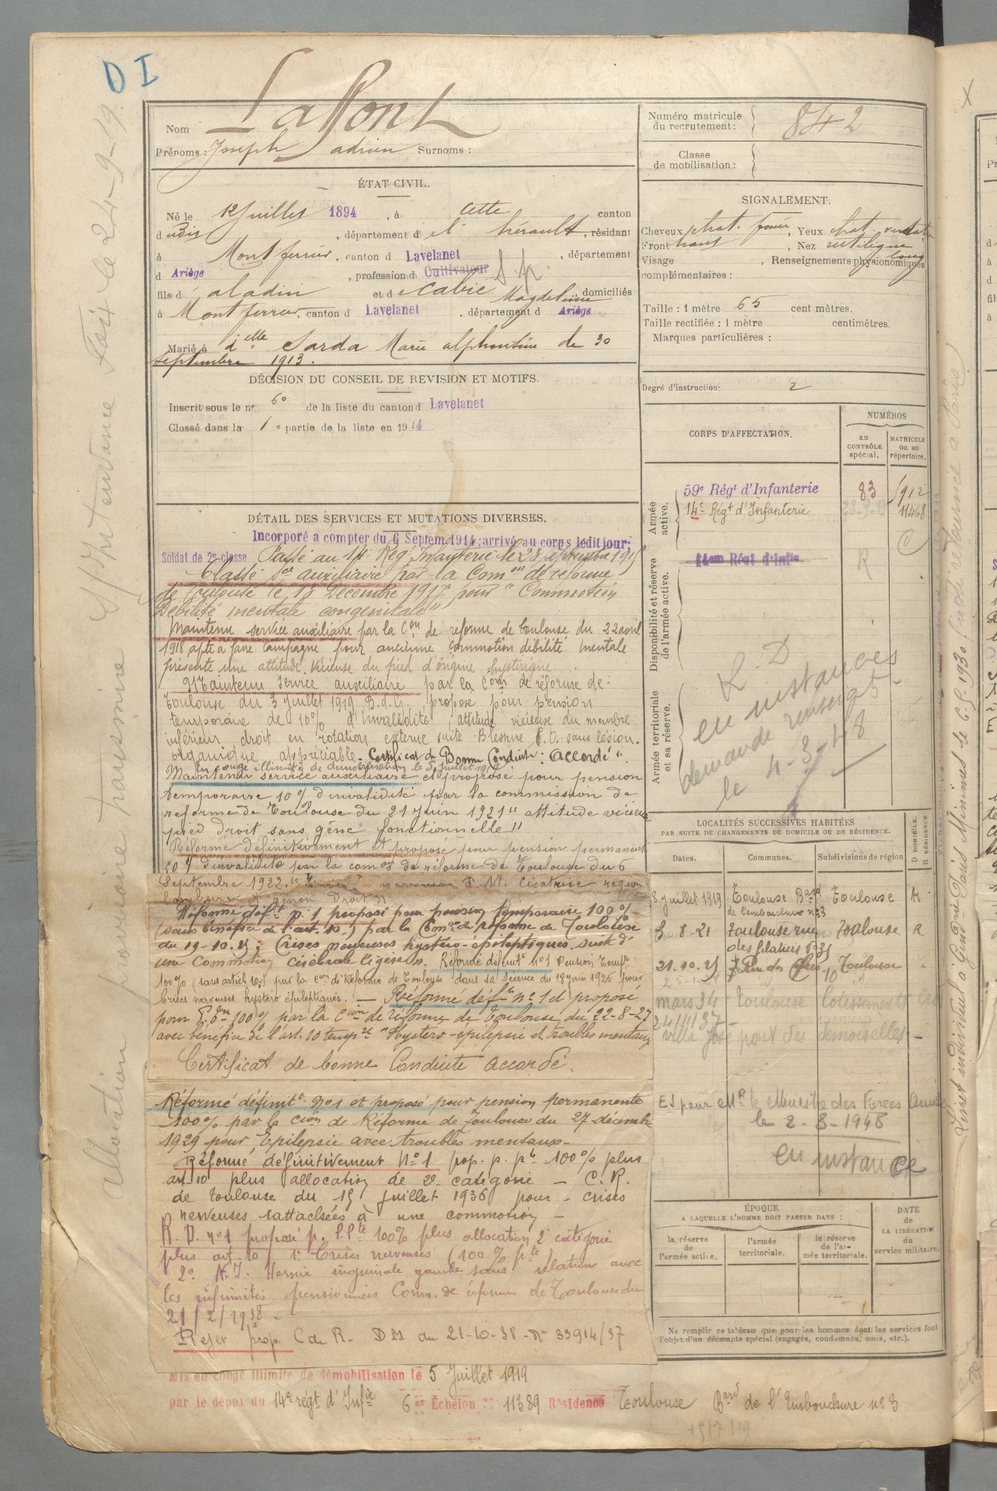 D I
Nom Lafont
Prénoms : Joseph adrien Surnoms :
Numéro matricule du recrutement : 842
Classe de mobilisation :
ÉTAT CIVIL.
Né le 12 Juillet 1894, à Cette canton
d udis, département d e l' hérault, résidant
à Montferrier, canton d Lavelanet, département
d Ariège, profession d Cultivateur S. P.
fils d' aladin et d e Cabié Magdeleine domiciliés
à Montferrier, canton d Lavelanet, département d Ariège
Marié à dlle Sarda Marie alphonsine de 30
septembre 1913.
SIGNALEMENT.
Cheveux chat. foncé, Yeux chat.
Front haut, Nez rectiligne
long
Visage , Renseignements physionomiques
complémentaires :
Taille : 1 mètre 65 centimètres.
Taille rectifiée : 1 mètre centimètres.
Marques particulières :
Degré d'instruction: 2
DÉCISION DU CONSEIL DE REVISION ET MOTIFS.
Inscrit sous le no 60 de la liste du canton d Lavelanet
Classé dans la 1e partie de la liste en 1914
CORPS D'AFFECTATION.
NUMÉROS
au contrôle spécial.
matricule ou au répertoire.
Armée active.
59e Régt d'Infanterie 83 1912
14e Régt d'Infanterie 11468
Disponibilité et réserve de l'armée active.
14eme Régt d'Infie R
Armée territoriale et sa réserve.
R. D
en instances
demande renseignt
le 4-3-48
DÉTAIL DES SERVICES ET MUTATIONS DIVERSES.
Incorporé à compter du 6 Septem. 1914; arrivé au corps ledit jour;
Soldat de 2e classe Passé au 14e Rég. Infanterie le 23 septembre 1915
Classé sce auxiliaire par la Comon de réforme
de Toulouse le 18 Décembre 1917 pour "Commotion
Débilité mentale congénitale"
Maintenu service auxiliaire par la Con de réforme de Toulouse du 22 avril
1918 apte à faire campagne pour ancienne commotion débilité mentale
présente une attitude vicieuse du pied d'origine hystérique.
Maintenu Service auxiliaire par la Com de réforme de
Toulouse du 3 juillet 1919 propose pour pension
temporaire de 10% d'invalidité attitude vicieuse du membre
inférieur droit en rotation externe suite Blessure sans lésion
organique appréciable. Certificat de Bonne Conduite : "Accordé".
Mis en congé illimité de démobilisation le 5 juillet 1919
Maintenu service auxiliaire et proposé pour pension
temporaire 10% d'invalidité par la commission de
reforme de Toulouse du 21 Juin 1921 "attitude vicieuse
pied droit sans gêne fonctionnelle"
Réformé définitivement et proposé pour pension permanente
d'invalidité par la comon de réforme de Toulouse du 6
Septembre 1922. cicatrice région
genou droit
Réformé déft no 1 proposé pour pension temporaire 100%
(sans bénéfice de l'art. 10) par la Comon de réforme de Toulouse
du 19-10.25 : Crises nerveuses hystéro-épileptiques, suite d'
une Commotion cérébrale légère. Réformé définit no 1 Pension Tempre
100% (sans article 10) par la con de Réforme de Toulouse dans sa séance du 18 juin 1926 pour
crises nerveuses hystéro épileptiques. — Réformé déft no 1 et proposé
pour 100% par la Con de réforme de Toulouse du 22-8-27
avec bénéfice de l'art. 10 tempre "Hystéro-épilepsie et troubles mentaux
Certificat de bonne Conduite accordé.
Réformé définitt no 1 et proposé pour pension permanente
100% par la cion de Réforme de Toulouse du 27 décembre
1929 pour Epilepsie avec troubles mentaux—
Réformé définitivement No 1 prop. p. pte 100% plus
art 10 plus allocation de 2e catégorie — C.R.
de Toulouse du 15 Juillet 1936 pour - crises
nerveuses rattachées à une commotion —
R. D. no 1 proposé p. P. Pte 100% plus allocation 2e catégorie
plus art. 10 1o Crises nerveuses (100% pte)
2o N.I. Hernie inguinale gauche sans relation avec
les infirmités pensionnées Comm. de réforme de Toulouse du
21/2/1938 -
Rejet prop. C de R - DM du 21-10-38 - No 33914/37
LOCALITÉS SUCCESSIVES HABITÉES
PAR SUITE DE CHANGEMENTS DE DOMICILE OU DE RÉSIDENCE.
Dates. Communes. Subdivisions de région D domicile. R résidence.
8 juillet 1919 Toulouse Bard de l'embouchure no 3 Toulouse R
8-21 Toulouse rue des filatiers no 31 Toulouse R
21.10.25 Toulouse
mars 34 Toulouse Lotissement
24/11/37
villa José pont des demoiselles
Et pour Mr le Ministre des Forces Armées
le 2-3-1948
en instance
ÉPOQUE
A LAQUELLE L'HOMME DOIT PASSER DANS :
la réserve de l'armée active.
l'armée territoriale.
la réserve de l'armée territoriale.
DATE de LA LIBÉRATION du service militaire.
Ne remplir ce tableau que pour les hommes dont les services font
l'objet d'un décompte spécial (engagés, condamnés, omis, etc.).
Mis en congé illimité de démobilisation le 5 Juillet 1919
par le dépôt du 14e régt d'Infie 6e Echelon No 11389 Résidence Toulouse Bard de l'Embouchure no 3
Allocation provisoire transmise s/Intendance Foix le 24-9-19